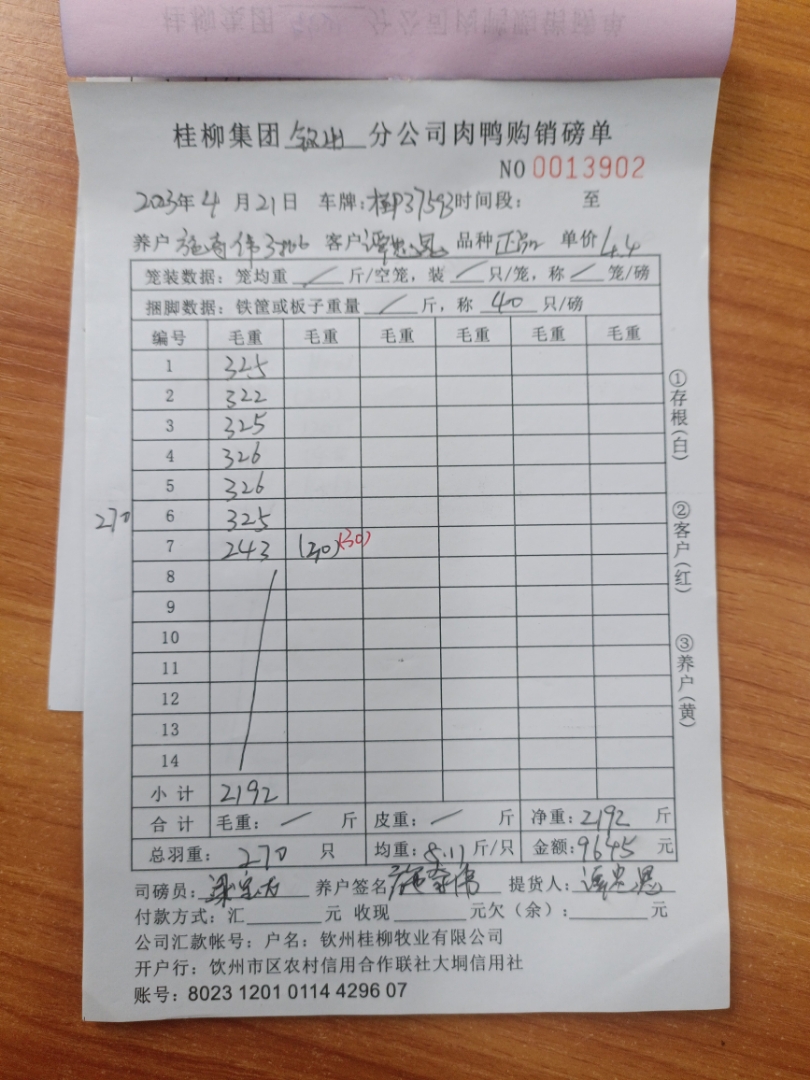 桂柳集团 钦州 分公司肉鸭购销磅单
NO 0013902
2023年4月21日 车牌:桂P37593 时间段: 至
养户 施 伟 客户 谭忠恩 品种 正品 单价 4.4
笼装数据: 笼均重 / 斤/空笼, 装 / 只/笼, 称 / 笼/磅
捆脚数据: 铁筐或板子重量 / 斤, 称 40 只/磅
编号 毛重 毛重 毛重 毛重 毛重 毛重
1 325
2 322
3 325
4 326
5 326
270 6 325
7 243 (30) (30)
8
9
10
11
12
13
14
小计 2192
合计 毛重: / 斤 皮重: / 斤 净重: 2192 斤
总羽重: 270 只 均重: 8.11 斤/只 金额: 9645 元
司磅员: 养户签名 施 伟 提货人: 谭忠恩
付款方式: 汇 元 收现 元欠(余): 元
公司汇款帐号: 户名: 钦州桂柳牧业有限公司
开户行: 饮州市区农村信用合作联社大垌信用社
账号: 8023 1201 0114 4296 07
①存根(白)
②客户(红)
③养户(黄)